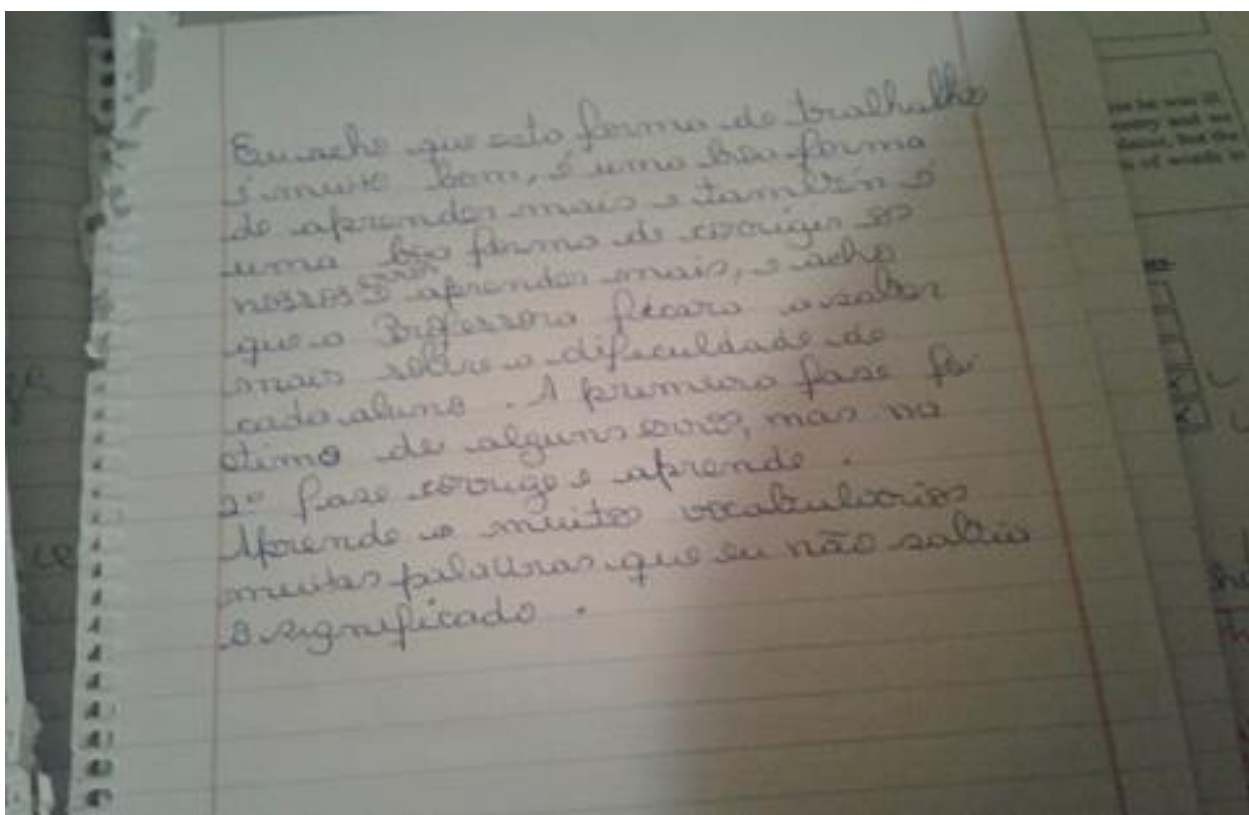 Eu acho que esta forma de trabalhulho
é muito bom, é uma boa forma
de aprender mais e também é
uma boa forma de corrigir os
nossos erros aprender mais, e acho
que a Professora ficara a saber
mais sobre a dificuldade de
cada aluno. A primeira fase fa
otimo de alguns erros, mas na
2º fase corrige e aprende.
Aprende-se muitos vocabularios
muitas palavras que eu não sabia
o significado.
pe he was ill,
but the
of words in